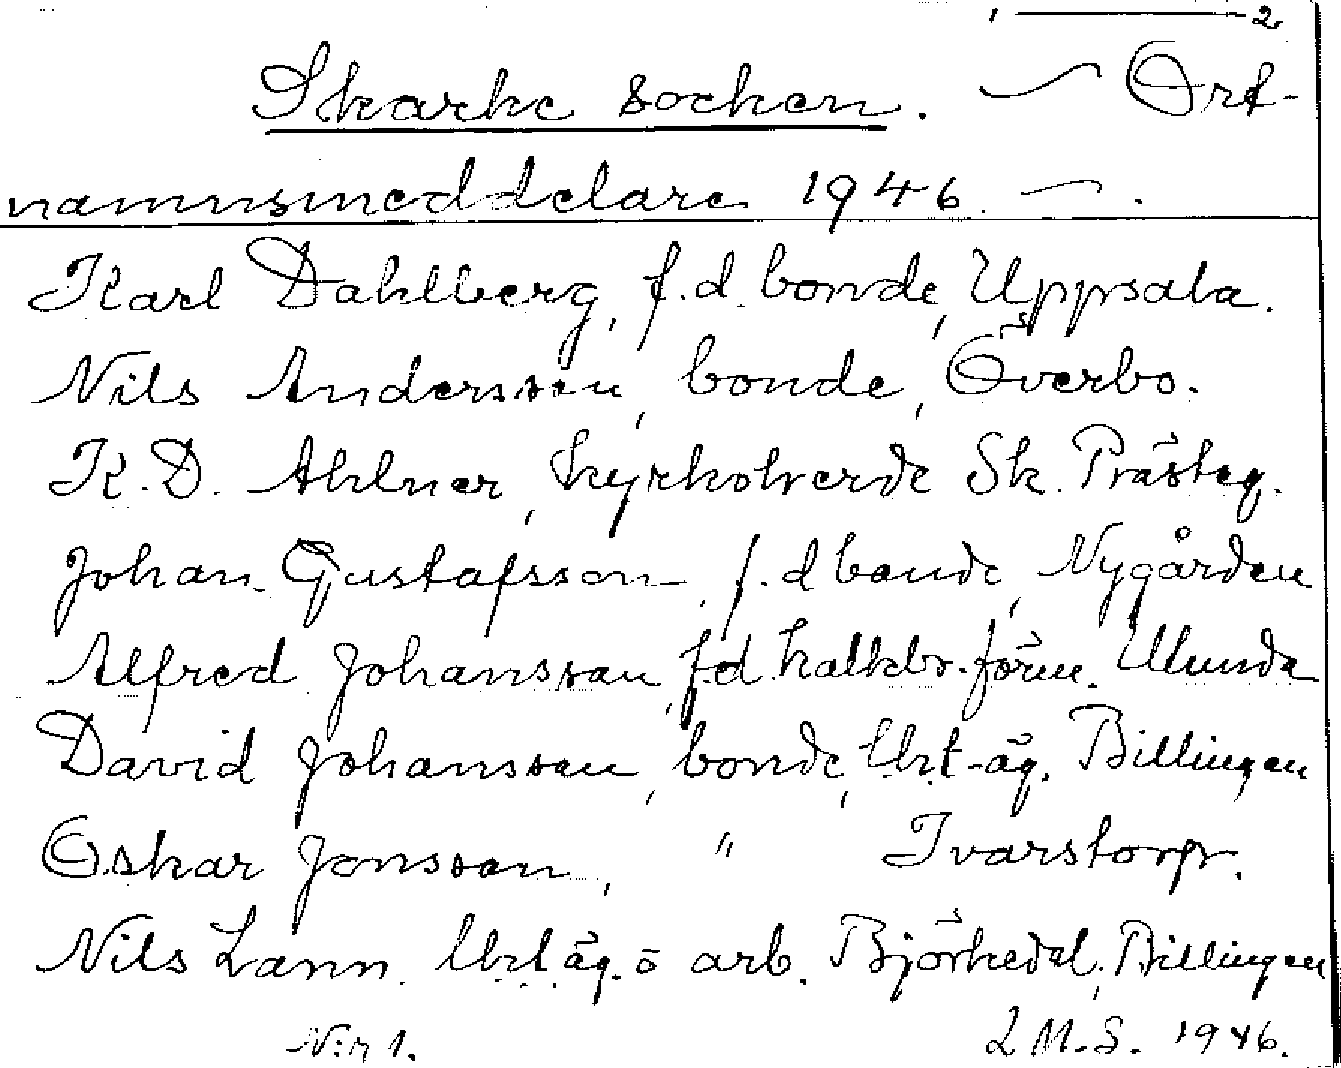 1 — 2
Skarke socken. — Ort-
namnsmeddelare 1946. —.
Karl Dahlberg, f.d. bonde, Uppsala.
Nils Andersson, bonde, Överbo.
K.D. Ahlner, kyrkoherde Sk. Prästeg.
Johan Gustafsson, f.d bonde, Nygården
Alfred Johansson, f.d. kalkbr.förm. Ulunda
David Johansson, bonde, lht-äg. Billingen
Oskar Jonsson, " Ivarstorp.
Nils Lann. lht äg. o arb. Björkedal, Billingen
N:r 1. L M.S. 1946.